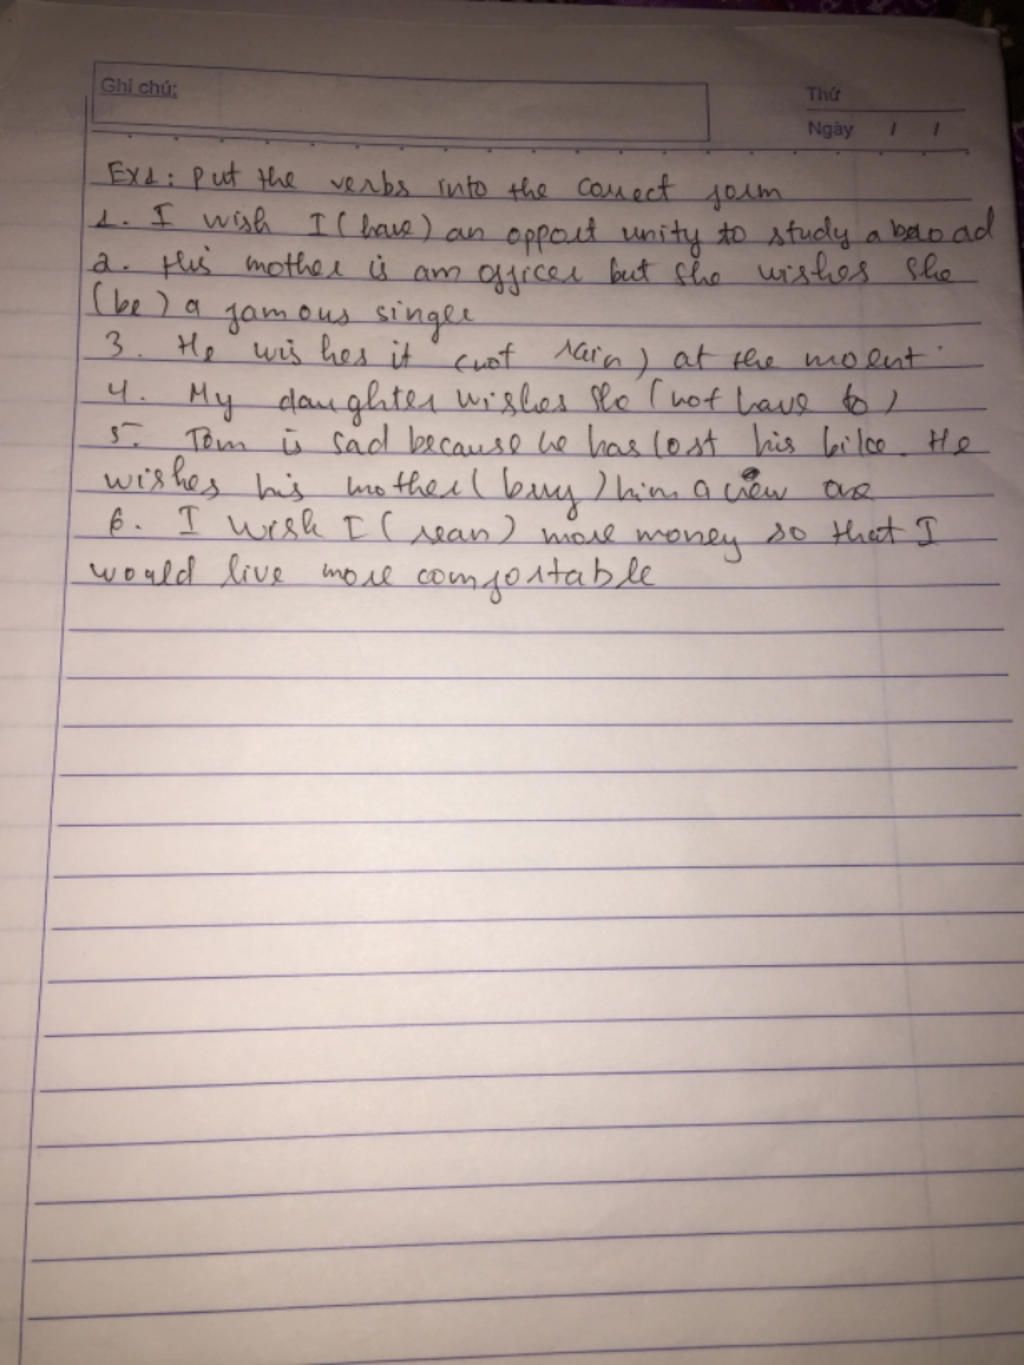 Ghi chú:
Thứ
Ngày / /
Ex1: Put the verbs into the correct form
1. I wish I (have) an opport unity to study abroad
2. His mother is am officer but she wishes she
(be) a famous singer
3. He wishes it (not rain) at the moent
4. My daughter wishes she (not have to)
5. Tom is sad because he has lost his bike. He
wishes his mother (buy) him a new one
6. I wish I (rean) more money so that I
would live more comfortable